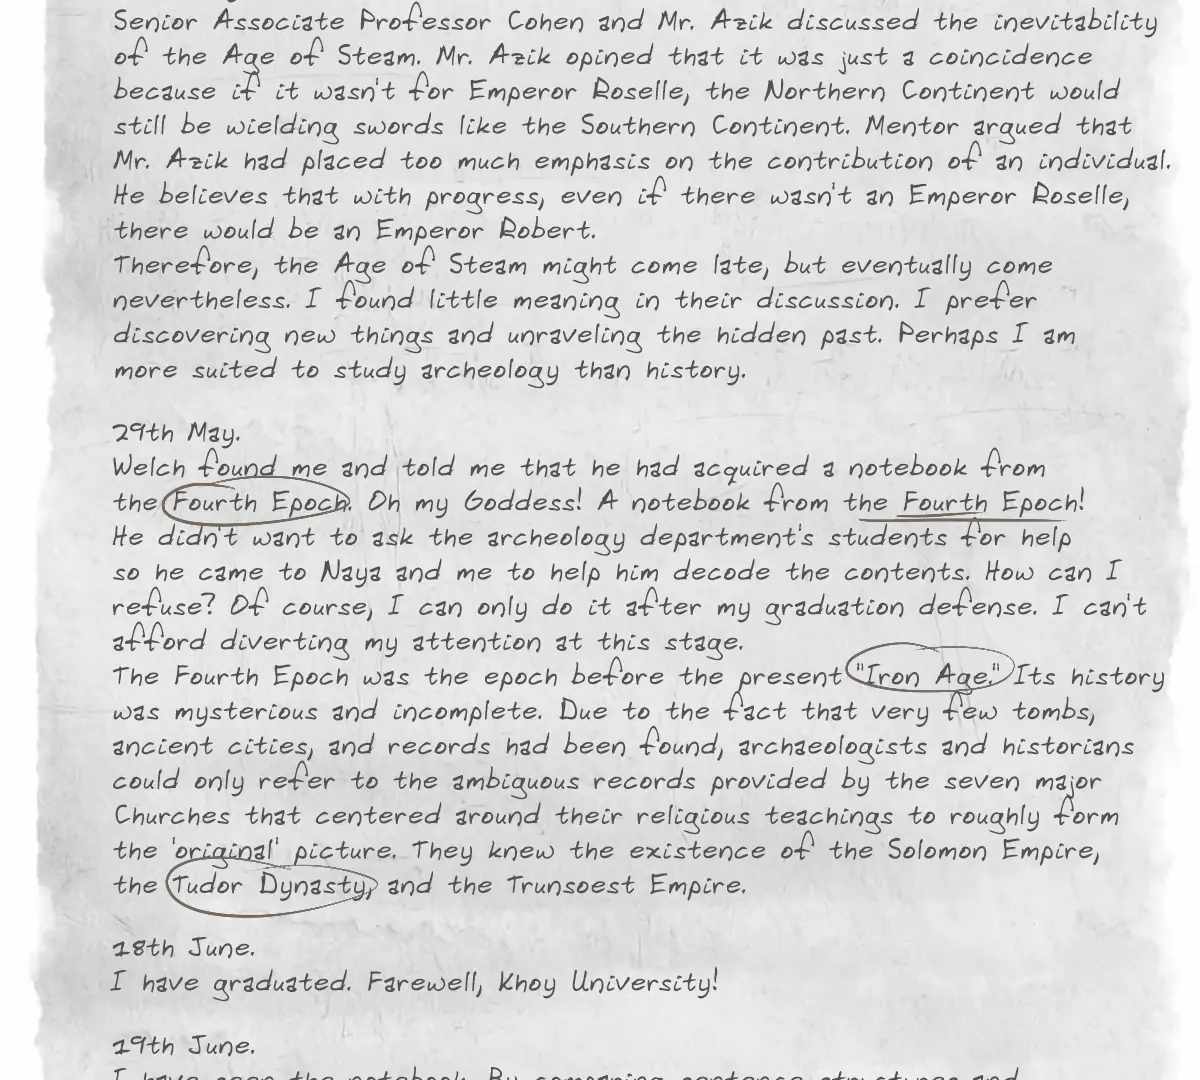 Senior Associate Professor Cohen and Mr. Azik discussed the inevitability
of the Age of Steam. Mr. Azik opined that it was just a coincidence
because if it wasn't for Emperor Roselle, the Northern Continent would
still be wielding swords like the Southern Continent. Mentor argued that
Mr. Azik had placed too much emphasis on the contribution of an individual.
He believes that with progress, even if there wasn't an Emperor Roselle,
there would be an Emperor Robert.
Therefore, the Age of Steam might come late, but eventually come
nevertheless. I found little meaning in their discussion. I prefer
discovering new things and unraveling the hidden past. Perhaps I am
more suited to study archeology than history.
29th May.
Welch found me and told me that he had acquired a notebook from
the Fourth Epoch. Oh my Goddess! A notebook from the Fourth Epoch!
He didn't want to ask the archeology department's students for help
so he came to Naya and me to help him decode the contents. How can I
refuse? Of course, I can only do it after my graduation defense. I can't
afford diverting my attention at this stage.
The Fourth Epoch was the epoch before the present "Iron Age." Its history
was mysterious and incomplete. Due to the fact that very few tombs,
ancient cities, and records had been found, archaeologists and historians
could only refer to the ambiguous records provided by the seven major
Churches that centered around their religious teachings to roughly form
the 'original' picture. They knew the existence of the Solomon Empire,
the Tudor Dynasty, and the Trunsoest Empire.
18th June.
I have graduated. Farewell, Khoy University!
19th June.
I have seen the notebook. By comparing sentence structures and